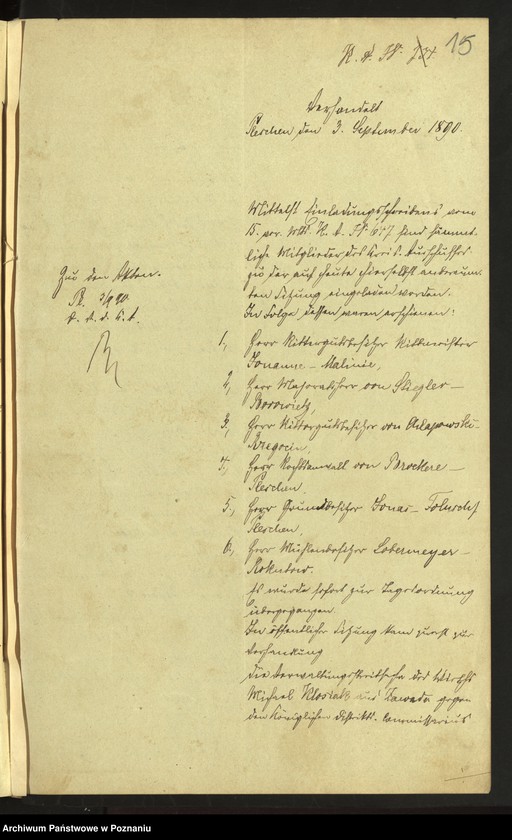 15
K. A. No.
Verhandelt
Pleschen den 3. September 1890.
Mittelst Einladungsschreibens vom
15. vor. Mts. K. A. No 677 sind sämmt-
liche Mitglieder des Kreis-Ausschusses
zu der auf heute hierselbst anberaum-
ten Sitzung eingeladen worden.
In Folge dessen waren erschienen:
Zu den Akten.
Pl. 3/9 90.
K. A. d. K. A.
1, Herr Rittergutsbesitzer Rittmeister
Jouanne - Malinie,
2, Herr Majoratsherr von Stiegler -
3, Herr Rittergutsbesitzer von Chlapowski -
Rzegocin,
4, Herr Rechtsanwalt von Broekere -
Pleschen,
5, Herr Grundbesitzer Jonas -
Pleschen,
6, Herr Mühlenbesitzer Lobermeyer -
Rokutow.
Es wurde sofort zur Tagesordnung
übergegangen.
In öffentlicher Sitzung kam zuerst zur
Verhandlung
die Verwaltungsstreitsache des Wirths
Michael aus Zawada gegen
den Königlichen Distrikts-Commissarius
Archiwum Państwowe w Poznaniu